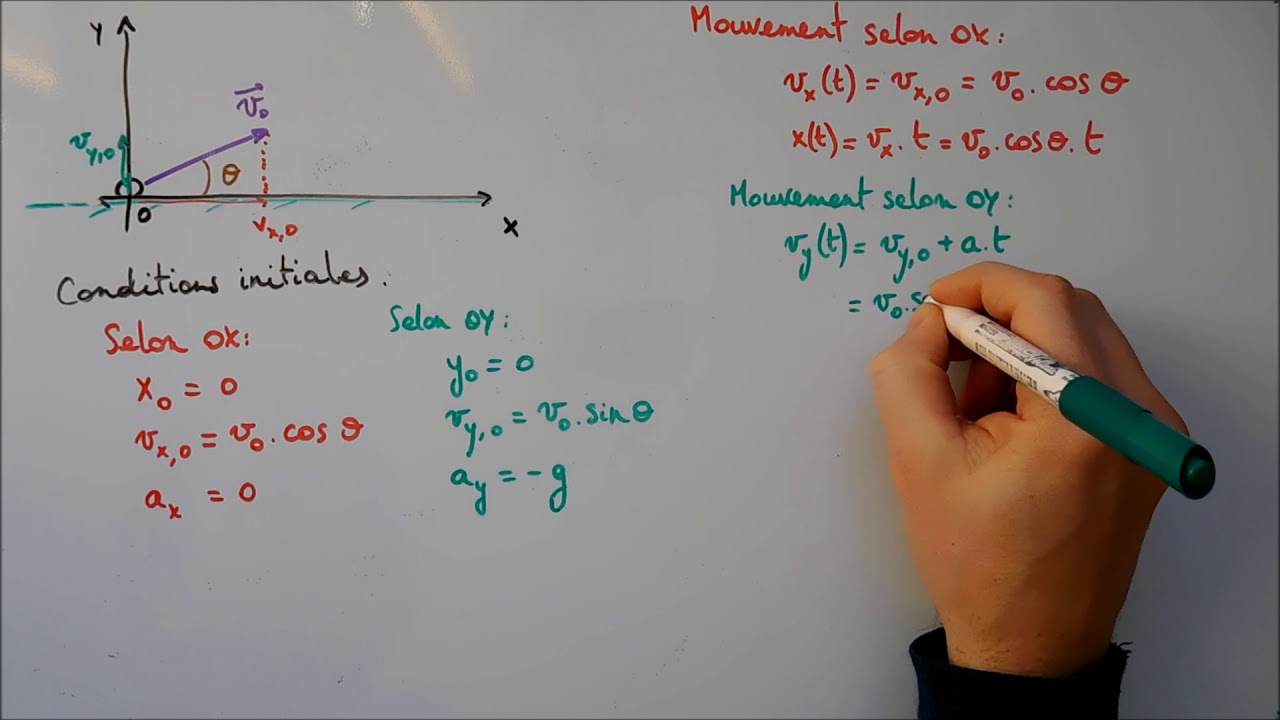 Y
v⃗₀
v_y,0
θ
O
v_x,0
X
Conditions initiales :
Selon OX :
x₀ = 0
v_x,0 = v₀ . cos θ
a_x = 0
Selon OY :
y₀ = 0
v_y,0 = v₀ . sin θ
a_y = - g
Mouvement selon OX :
v_x(t) = v_x,0 = v₀ . cos θ
x(t) = v_x . t = v₀ . cos θ . t
Mouvement selon OY :
v_y(t) = v_y,0 + a . t
= v₀ . s